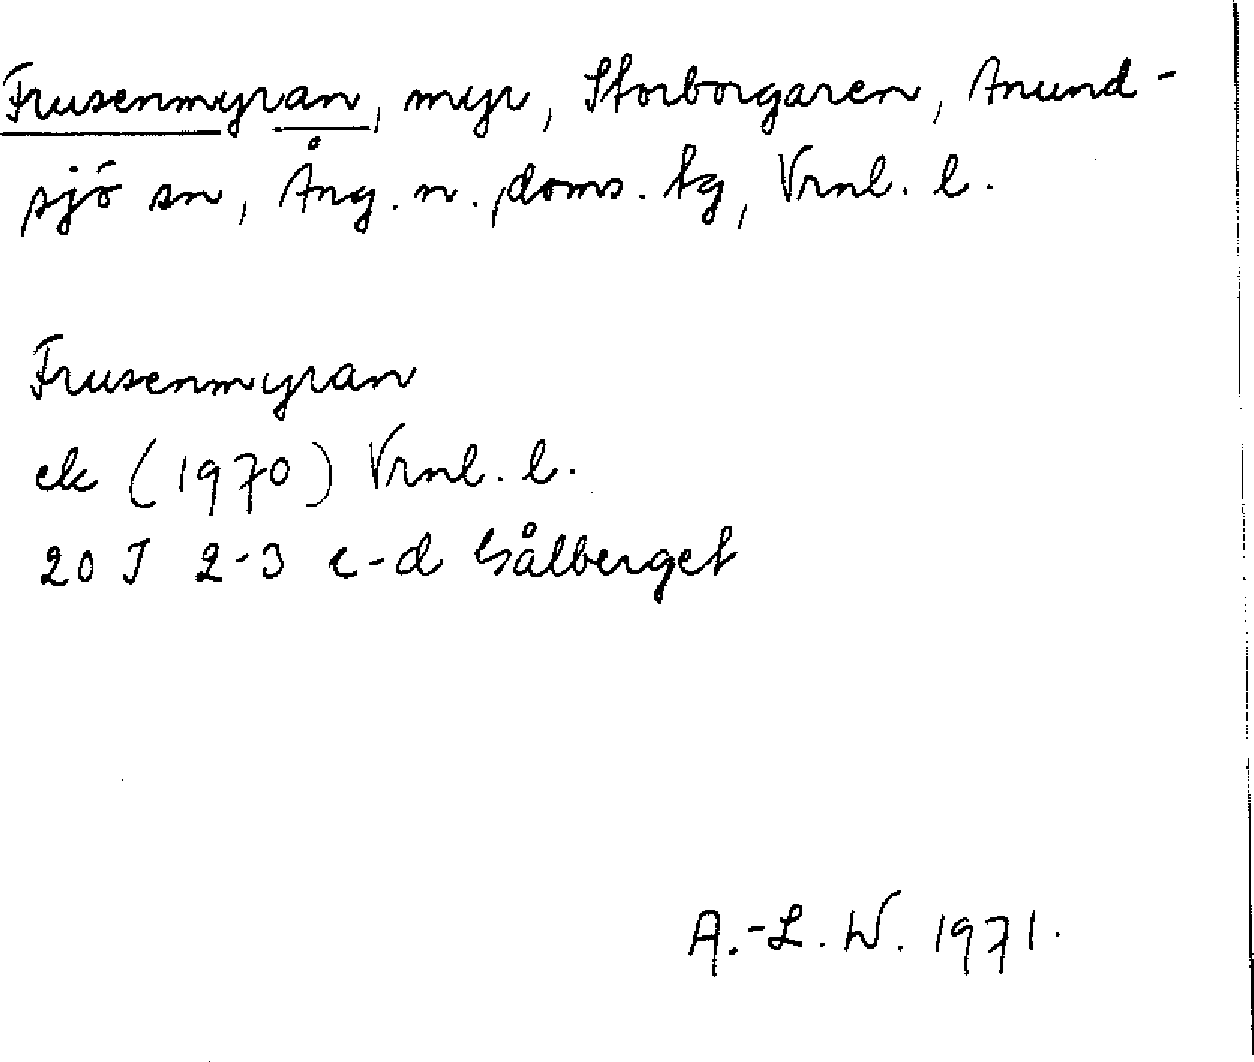 Frusenmyran, myr, Storborgaren, Anund-
sjö sn, Ång. n. doms. tg, Vrnl. l.
Frusenmyran
ek (1970) Vrnl. l.
20 J 2-3 c-d Gålberget
A.-L. W. 1971.